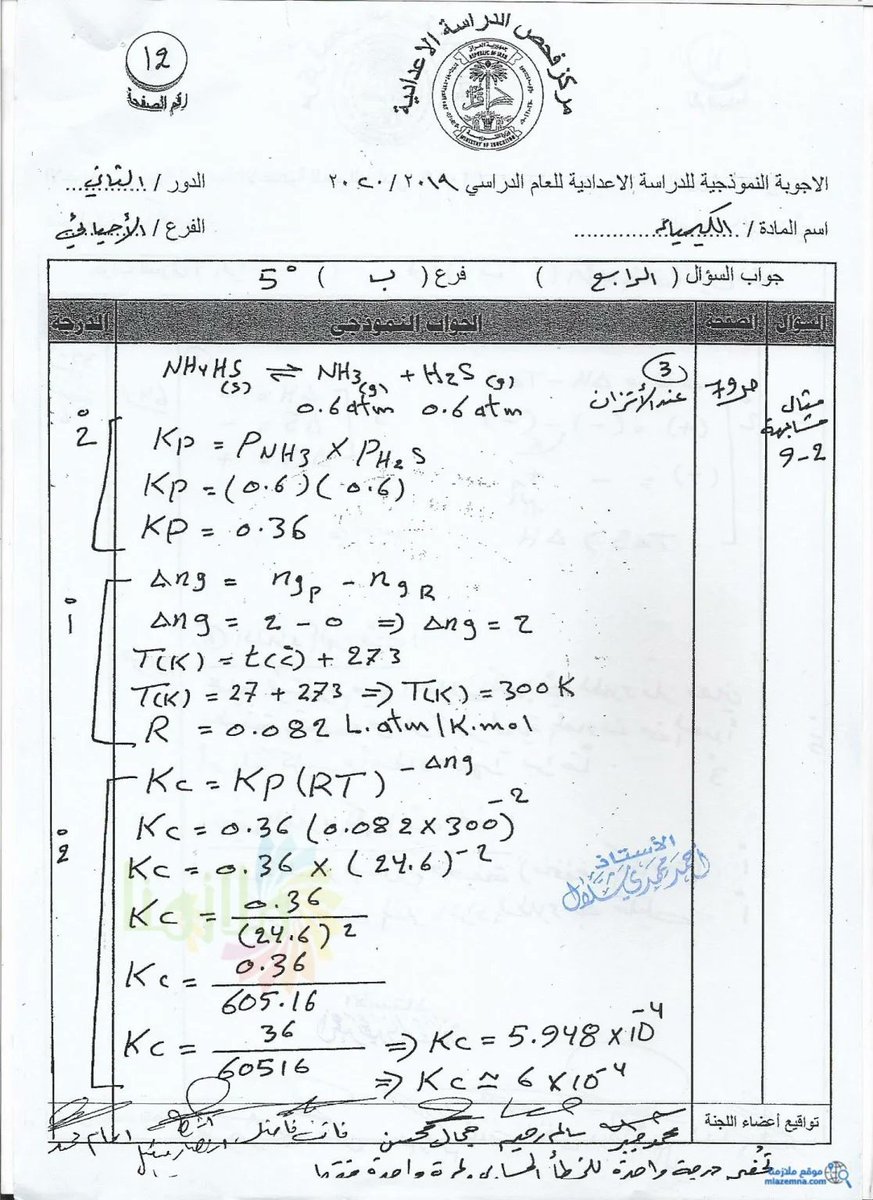 مركز فحص الدراسة الاعدادية
12
رقم الصفحة
REPUBLIC OF IRAQ
MINISTRY OF EDUCATION
الاجوبة النموذجية للدراسة الاعدادية للعام الدراسي ٢٠١٩ / ٢٠٢٠
الدور / الثاني
اسم المادة / الكيمياء
الفرع / الأحيائي
جواب السؤال ( الرابع ) فرع ( ب ) 5°
السؤال الصفحة الجواب النموذجي الدرجة
مثال
مشابهة
9-2
ص79
3
عند الأتزان
NH4HS(s) ⇌ NH3(g) + H2S(g)
0.6 atm 0.6 atm
2°
Kp = PNH3 × PH2S
Kp = (0.6)(0.6)
Kp = 0.36
1°
Δng = ngP - ngR
Δng = 2 - 0 ⇒ Δng = 2
T(K) = t(c̊) + 273
T(K) = 27 + 273 ⇒ T(K) = 300 K
R = 0.082 L.atm/K.mol
2°
Kc = Kp (RT)^-Δng
Kc = 0.36 (0.082 × 300)^-2
Kc = 0.36 × (24.6)^-2
Kc = 0.36 / (24.6)^2
Kc = 0.36 / 605.16
Kc = 36 / 60516 ⇒ Kc = 5.948 × 10^-4
⇒ Kc ≃ 6 × 10^-4
الأستاذ
ملازمنا
تواقيع أعضاء اللجنة
سالم رحيم جمال محسن فاتن فاضل
درجة واحدة للخطأ الحسابي لمرة واحدة فقط
موقع ملازمنا
mlazemna.com